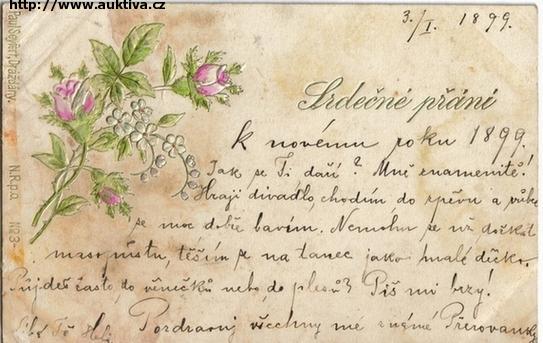 http://www.auktiva.cz
3./I. 1899.
Paul Seifert, Drážďany.
N.R.p.a. No 3
Srdečné přání
K novému roku 1899.
Jak se Ti daří? Mně znamenitě!
Hraji divadlo, chodím do zpěvu a vůbec
se moc dobře bavím. Nemohu se už dočkat
masopustu, těším se na tanec jako malé děcko.
Půjdeš často do věnečků nebo do plesů? Piš mi brzy!
Pozdravuj všechny mé známé